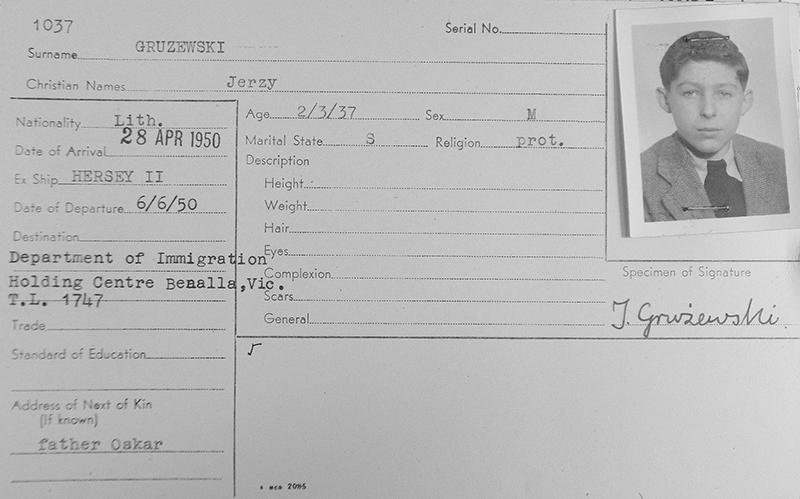 1037
Serial No.
Surname GRUZEWSKI
Christian Names Jerzy
Nationality Lith.
Date of Arrival 28 APR 1950
Ex Ship HERSEY II
Date of Departure 6/6/50
Destination
Department of Immigration
Holding Centre Benalla, Vic.
T.L. 1747
Trade
Standard of Education
Address of Next of Kin
(If known)
father Oskar
Age 2/3/37 Sex M
Marital State S Religion prot.
Description
Height
Weight
Hair
Eyes
Complexion
Scars
General
Specimen of Signature
J. Grużewski
2085